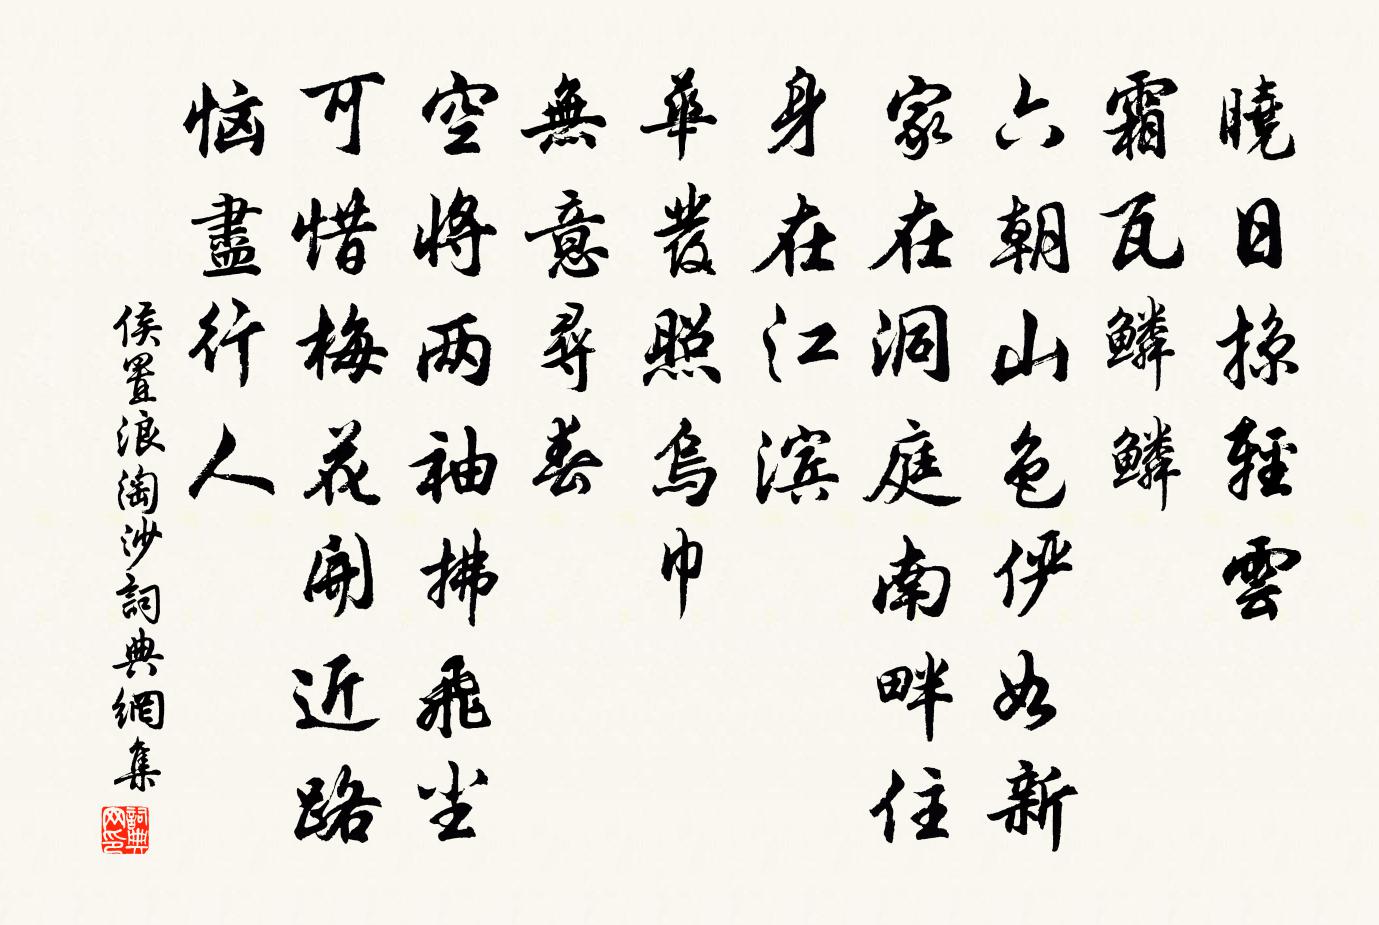 曉日掠輕雲
霜瓦鱗鱗
六朝山色俨如新
家在洞庭南畔住
身在江滨
華發照烏巾
無意尋春
空將两袖拂飛尘
可惜梅花開近路
恼盡行人
侯置浪淘沙詞典網集
詞典网印